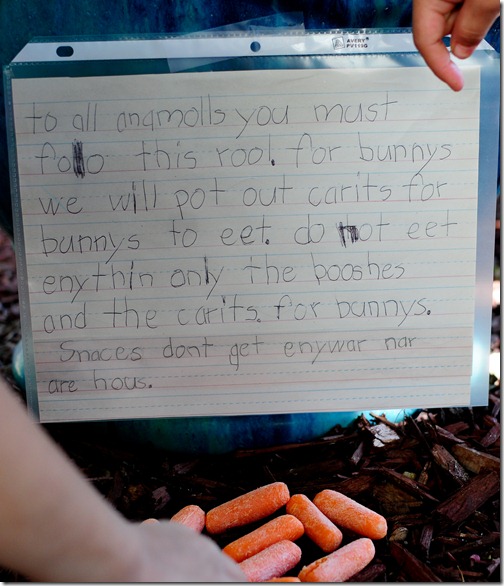 AVERY®
PV119G
to all anamolls you must
follo this rool. for bunnys
we will pot out carits for
bunnys to eet. do not eet
enythin only the booshes
and the carits. for bunnys.
Snaces dont get enywar nar
are hous.